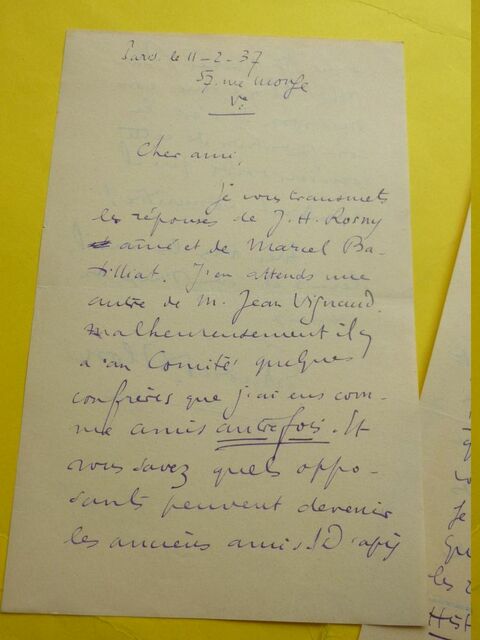 Paris le 11-2-37
57, rue Monge
Ve
Cher ami,
Je vous transmets
les réponses de J.-H. Rosny
aîné et de Marcel Ba-
tilliat. J'en attends une
autre de M. Jean Vignaud.
Malheureusement il y
a au Comité quelques
confrères que j'ai eus com-
me amis autrefois. Et
vous savez quels oppo-
sants peuvent devenir
les anciens amis ! D'après
Je
que
les